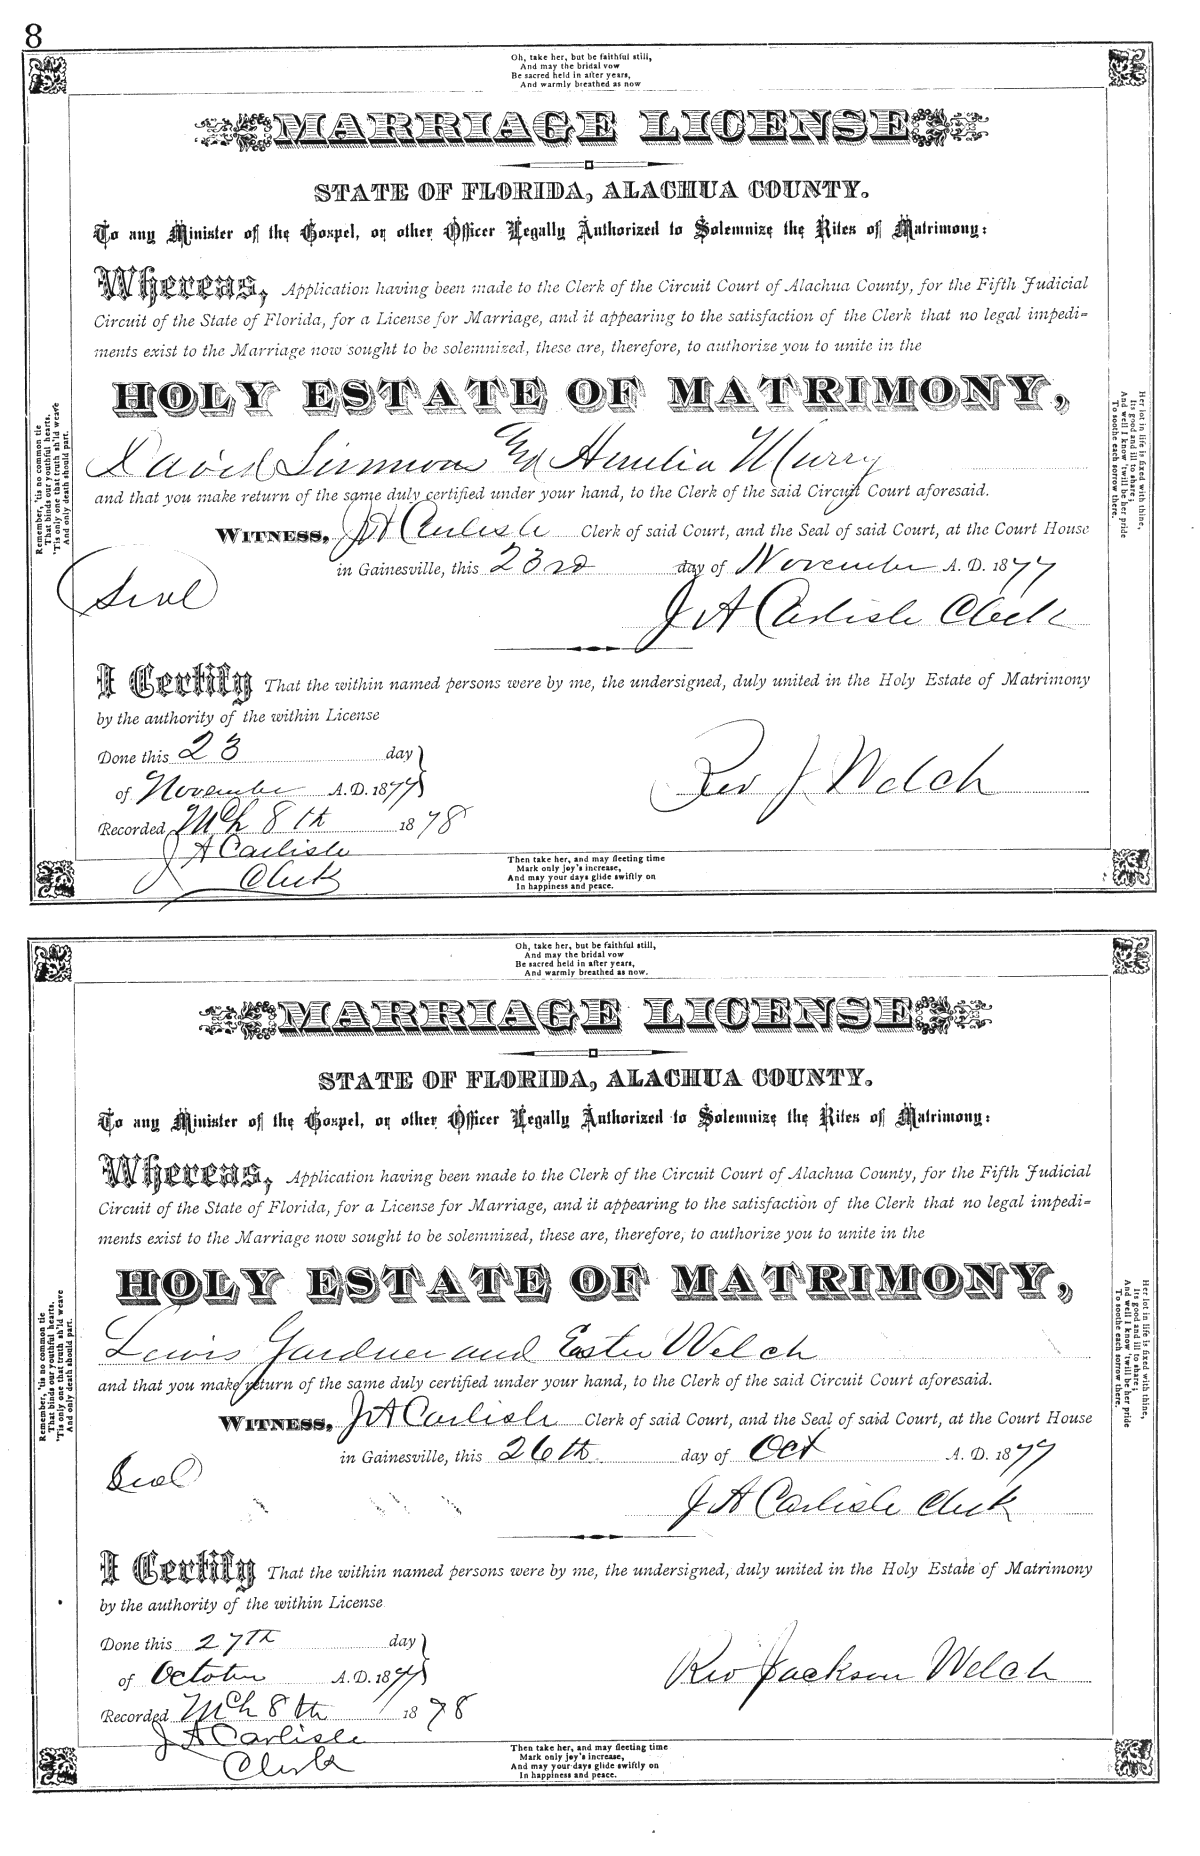 8
Oh, take her, but be faithful still,
And may the bridal vow
Be sacred held in after years,
And warmly breathed as now
MARRIAGE LICENSE
STATE OF FLORIDA, ALACHUA COUNTY.
To any Minister of the Gospel, or other Officer Legally Authorized to Solemnize the Rites of Matrimony:
Whereas, Application having been made to the Clerk of the Circuit Court of Alachua County, for the Fifth Judicial
Circuit of the State of Florida, for a License for Marriage, and it appearing to the satisfaction of the Clerk that no legal impedi-
ments exist to the Marriage now sought to be solemnized, these are, therefore, to authorize you to unite in the
HOLY ESTATE OF MATRIMONY,
David Simmons Amelia Murry
and that you make return of the same duly certified under your hand, to the Clerk of the said Circuit Court aforesaid.
WITNESS, J A Carlisle Clerk of said Court, and the Seal of said Court, at the Court House
in Gainesville, this 23rd day of November A. D. 1877
Seal
J A Carlisle Clerk
I Certify That the within named persons were by me, the undersigned, duly united in the Holy Estate of Matrimony
by the authority of the within License
Done this 23 day
of November A.D. 1877
Rev J Welch
Recorded Mch 8th 1878
J A Carlisle
Clerk
Remember, 'tis no common tie
That binds our youthful hearts.
'Tis only one that truth sh'ld weave
And only death should part.
Her lot in life is fixed with thine,
Its good and ill to share;
And well I know 'twill be her pride
To soothe each sorrow there.
Then take her, and may fleeting time
Mark only joy's increase,
And may your days glide swiftly on
In happiness and peace.
Oh, take her, but be faithful still,
And may the bridal vow
Be sacred held in after years,
And warmly breathed as now.
MARRIAGE LICENSE
STATE OF FLORIDA, ALACHUA COUNTY.
To any Minister of the Gospel, or other Officer Legally Authorized to Solemnize the Rites of Matrimony:
Whereas, Application having been made to the Clerk of the Circuit Court of Alachua County, for the Fifth Judicial
Circuit of the State of Florida, for a License for Marriage, and it appearing to the satisfaction of the Clerk that no legal impedi-
ments exist to the Marriage now sought to be solemnized, these are, therefore, to authorize you to unite in the
HOLY ESTATE OF MATRIMONY,
Lewis Gardner and Ester Welch
and that you make return of the same duly certified under your hand, to the Clerk of the said Circuit Court aforesaid.
WITNESS, J A Carlisle Clerk of said Court, and the Seal of said Court, at the Court House
in Gainesville, this 26th day of Oct A. D. 1877
Seal
J A Carlisle Clerk
I Certify That the within named persons were by me, the undersigned, duly united in the Holy Estate of Matrimony
by the authority of the within License
Done this 27th day
of October A.D. 1877
Rev Jackson Welch
Recorded Mch 8th 1878
J A Carlisle
Clerk
Remember, 'tis no common tie
That binds our youthful hearts.
'Tis only one that truth sh'ld weave
And only death should part.
Her lot in life is fixed with thine,
Its good and ill to share;
And well I know 'twill be her pride
To soothe each sorrow there.
Then take her, and may fleeting time
Mark only joy's increase,
And may your days glide swiftly on
In happiness and peace.